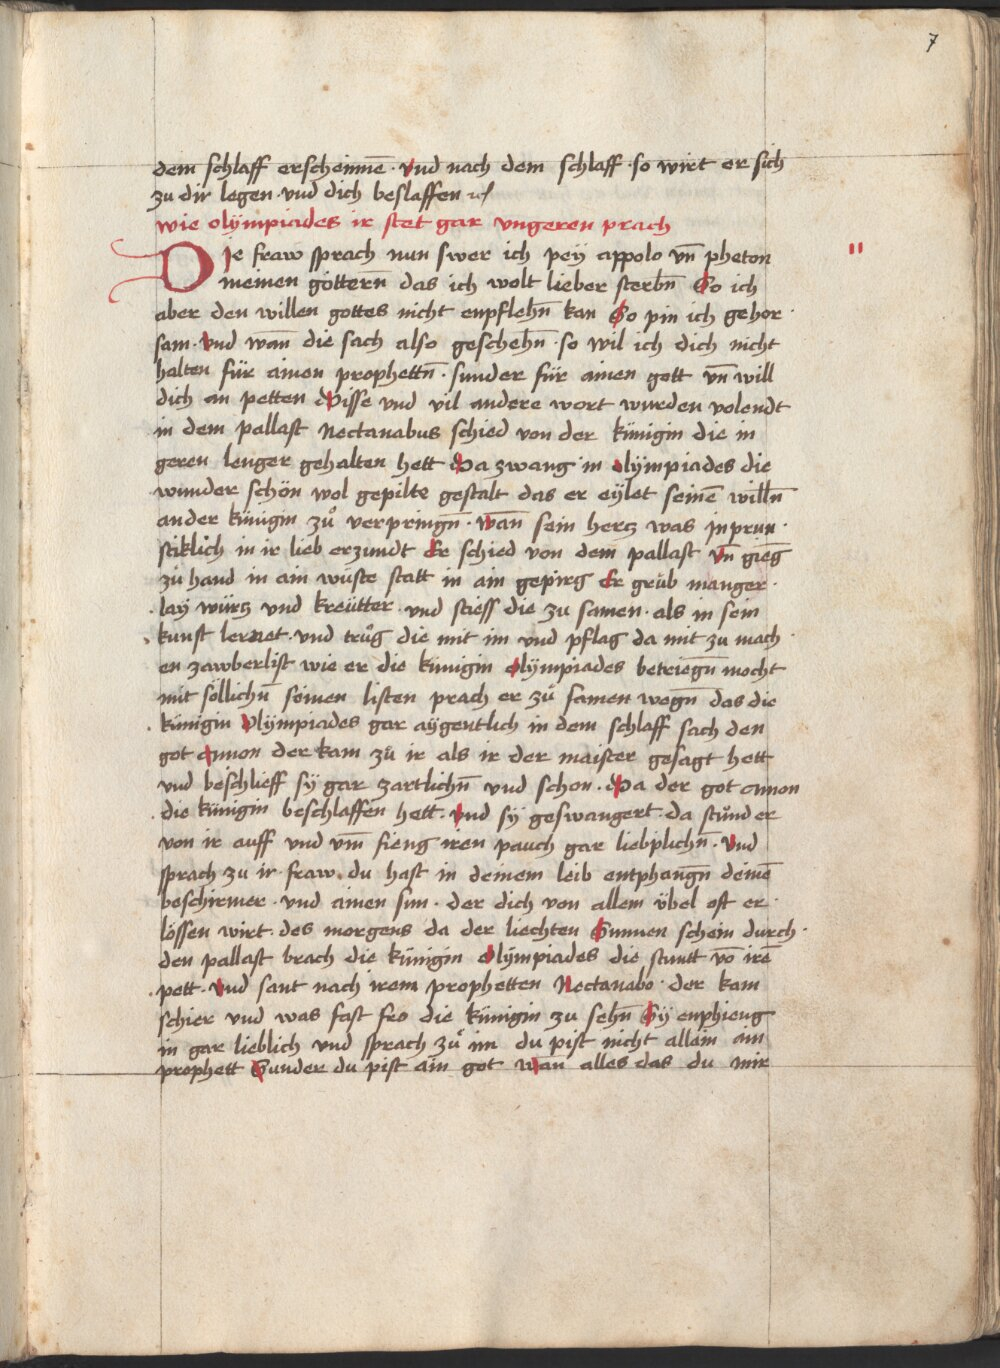 7
dem schlaff erscheinnē · vnd nach dem schlaff · so wirt er sich
zu dir legen · vnd dich beslaffen
wie olÿmpiades ir stet gar vngeren prach
"
DIe fraw sprach nun swer ich peÿ appolo vn̄ pheton
meinen göttern̄ das ich wolt lieber sterbn̄ So ich
aber den willen gottes nicht enpflehn̄ kan So pin ich gehor ·
sam · vnd wan̄ die sach also geschehn̄ · so wil ich dich nicht
halten für ainen prophettn̄ · sunder für ainen gott vn̄ will
dich an petten Disse vnd vil andere wort wurden volendt
in dem pallast Nectanabus schied von der künigin die in
geren lenger gehalten hett Da zwang in olÿmpiades die
wunder schön wol gepilte gestalt das er eÿlet seinē willn̄
an der künigin zů verpringn̄ · wan̄ sein hercz was inprun ·
stiklich in ir lieb erzundt Er schied von dem pallast vn̄ gieḡ
zů hand in ain wüste statt in ain gepirg Er grůb manger ·
lay würcz vnd kreütter · vnd stiess die zu samen · als in sein
kunst lernet · vnd trůg die mit im vnd pflag da mit zu mach ·
en zawberlist wie er die künigin olÿmpiades betriegn̄ mocht
mit söllichn̄ seinen listen prach er zů samen wegn̄ das die
künigin Olÿmpiades gar aÿgentlich in dem schlaff sach den
got amon der kam zů ir als ir der maister gesagt hett
vnd beschlieff sÿ gar zartlichn̄ vnd schon · Da der got amon
die künigin beschlaffen hett · vnd sÿ geswangert · da stůnd er
von ir auff vnd vm̄ fieng iren pauch gar lieblichn̄ · vnd
sprach zu ir · fraw · du hast in deinem leib entphangn̄ deinē
beschirmer · vnd ainen sun · der dich von allem übel oft er ·
lössen wirt · des morgens da der liechten Sunnen schein durch ·
den pallast brach die künigin olÿmpiades die stuntt vō irē
pett · vnd sant nach irem prophetten Nectanabo · der kam
schier vnd was fast fro die künigin zu sehn̄ Sÿ enphieng
in gar lieblich vnd sprach zů im du pist nicht allain ain
prophett Sunder du pist ain got wan̄ alles das du mir